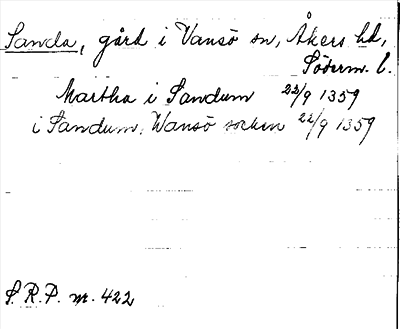 Sanda, gård i Vansö sn, Åkers hd,
Söderm. l.
Martha i Sandum 22/9 1359
i Sandum, Wansö socken 22/9 1359
S.R.P. nr. 422